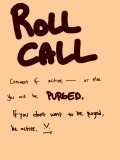 ROLL
CALL
Comment if active — or else
You will be PURGED.
If you don't want to be purged,
be active. V